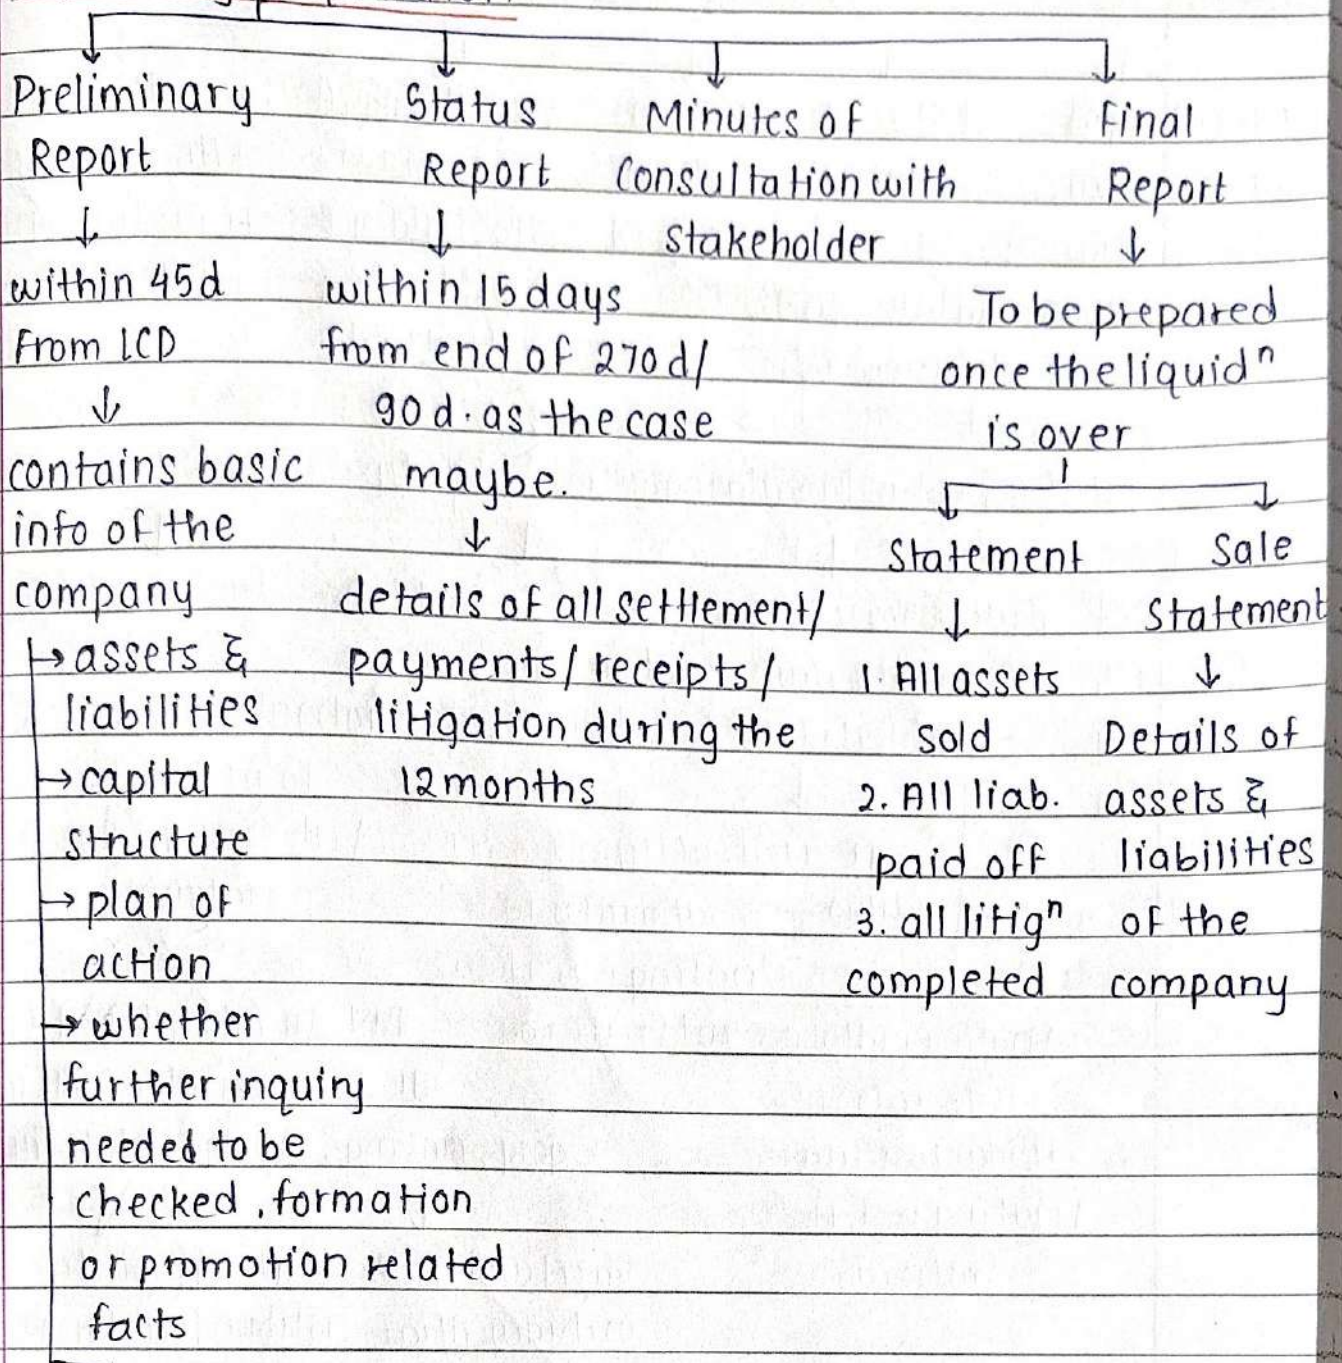 Preliminary
Report
↓
within 45d
From LCD
↓
contains basic
info of the
company
→ assets &
liabilities
→ capital
structure
→ plan of
action
→ whether
further inquiry
needed to be
checked, formation
or promotion related
facts
Status
Report
↓
within 15 days
from end of 270 d/
90 d. as the case
maybe.
↓
details of all settlement/
payments/ receipts/
litigation during the
12 months
Minutes of
Consultation with
stakeholder
Final
Report
↓
To be prepared
once the liquidⁿ
is over
Statement
↓
1. All assets
sold
2. All liab.
paid off
3. all litigⁿ
completed
Sale
Statement
↓
Details of
assets &
liabilities
of the
company